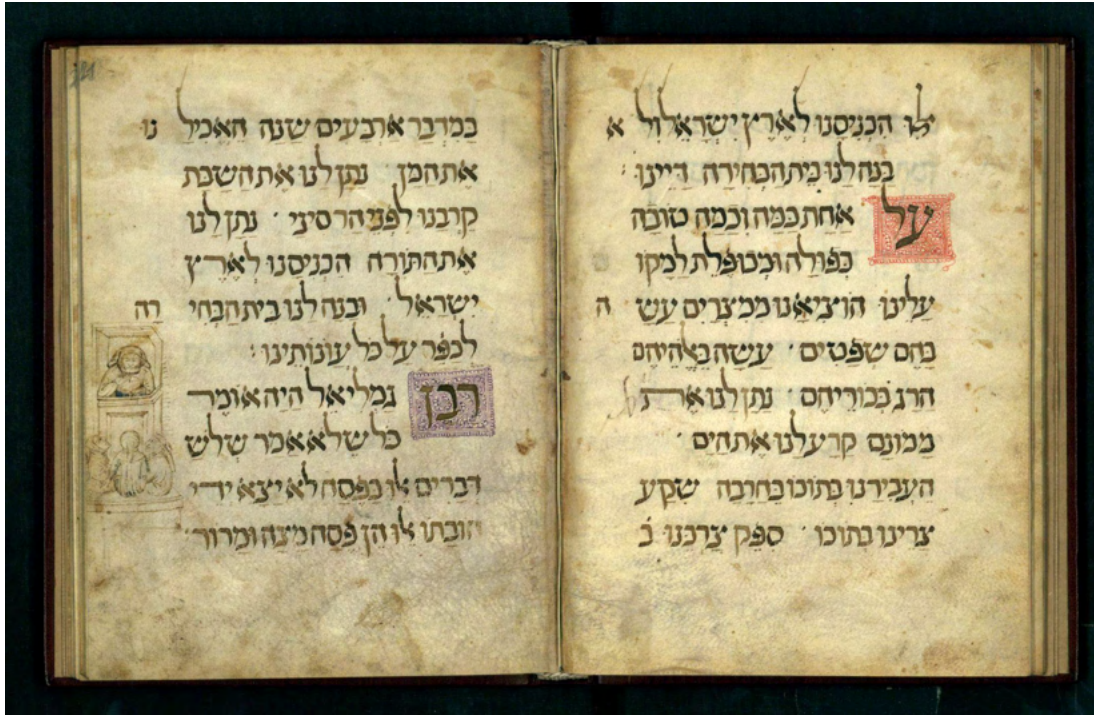 אלו הכניסנו לארץ ישראל ול א
בנה לנו בית הבחירה דיינו:
על אחת כמה וכמה טובה
כפולה ומכופלת למקו
עלינו הוציאנו ממצרים עש ה
בהם שפטים · עשה באלהיהם
הרג בכוריהם · נתן לנו את
ממונם קרע לנו את הים ·
העבירנו בתוכו בחרבה שקע
צרינו בתוכו · ספק צרכנו ב
במדבר ארבעים שנה האכיל נו
את המן נתן לנו את השבת
קרבנו לפני הר סיני · נתן לנו
את התורה הכניסנו לארץ
ישראל · ובנה לנו בית הבחי רה
לכפר על כל עונותינו:
רבן גמליאל היה אומר
כל שלא אמר שלש
דברים אלו בפסח לא יצא ידי
חובתו אלו הן פסח מצה ומרור ·